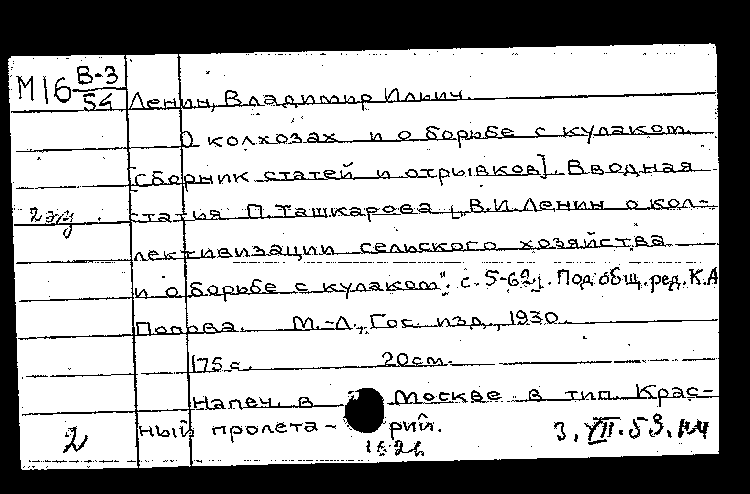 М16 В-3
54
Ленин, Владимир Ильич.
О колхозах и о борьбе с кулаком.
[Сборник статей и отрывков]. Вводная
2 экз. статья П. Ташкарова „В.И. Ленин о кол-
лективизации сельского хозяйства
и о борьбе с кулаком", с. 5-62]. Под общ. ред. К.А
Попова. М.-Л., Гос. изд., 1930.
175 с. 20 см.
Напеч. в Москве в тип. Крас-
2 ный пролета- рий. 3.VII.53.